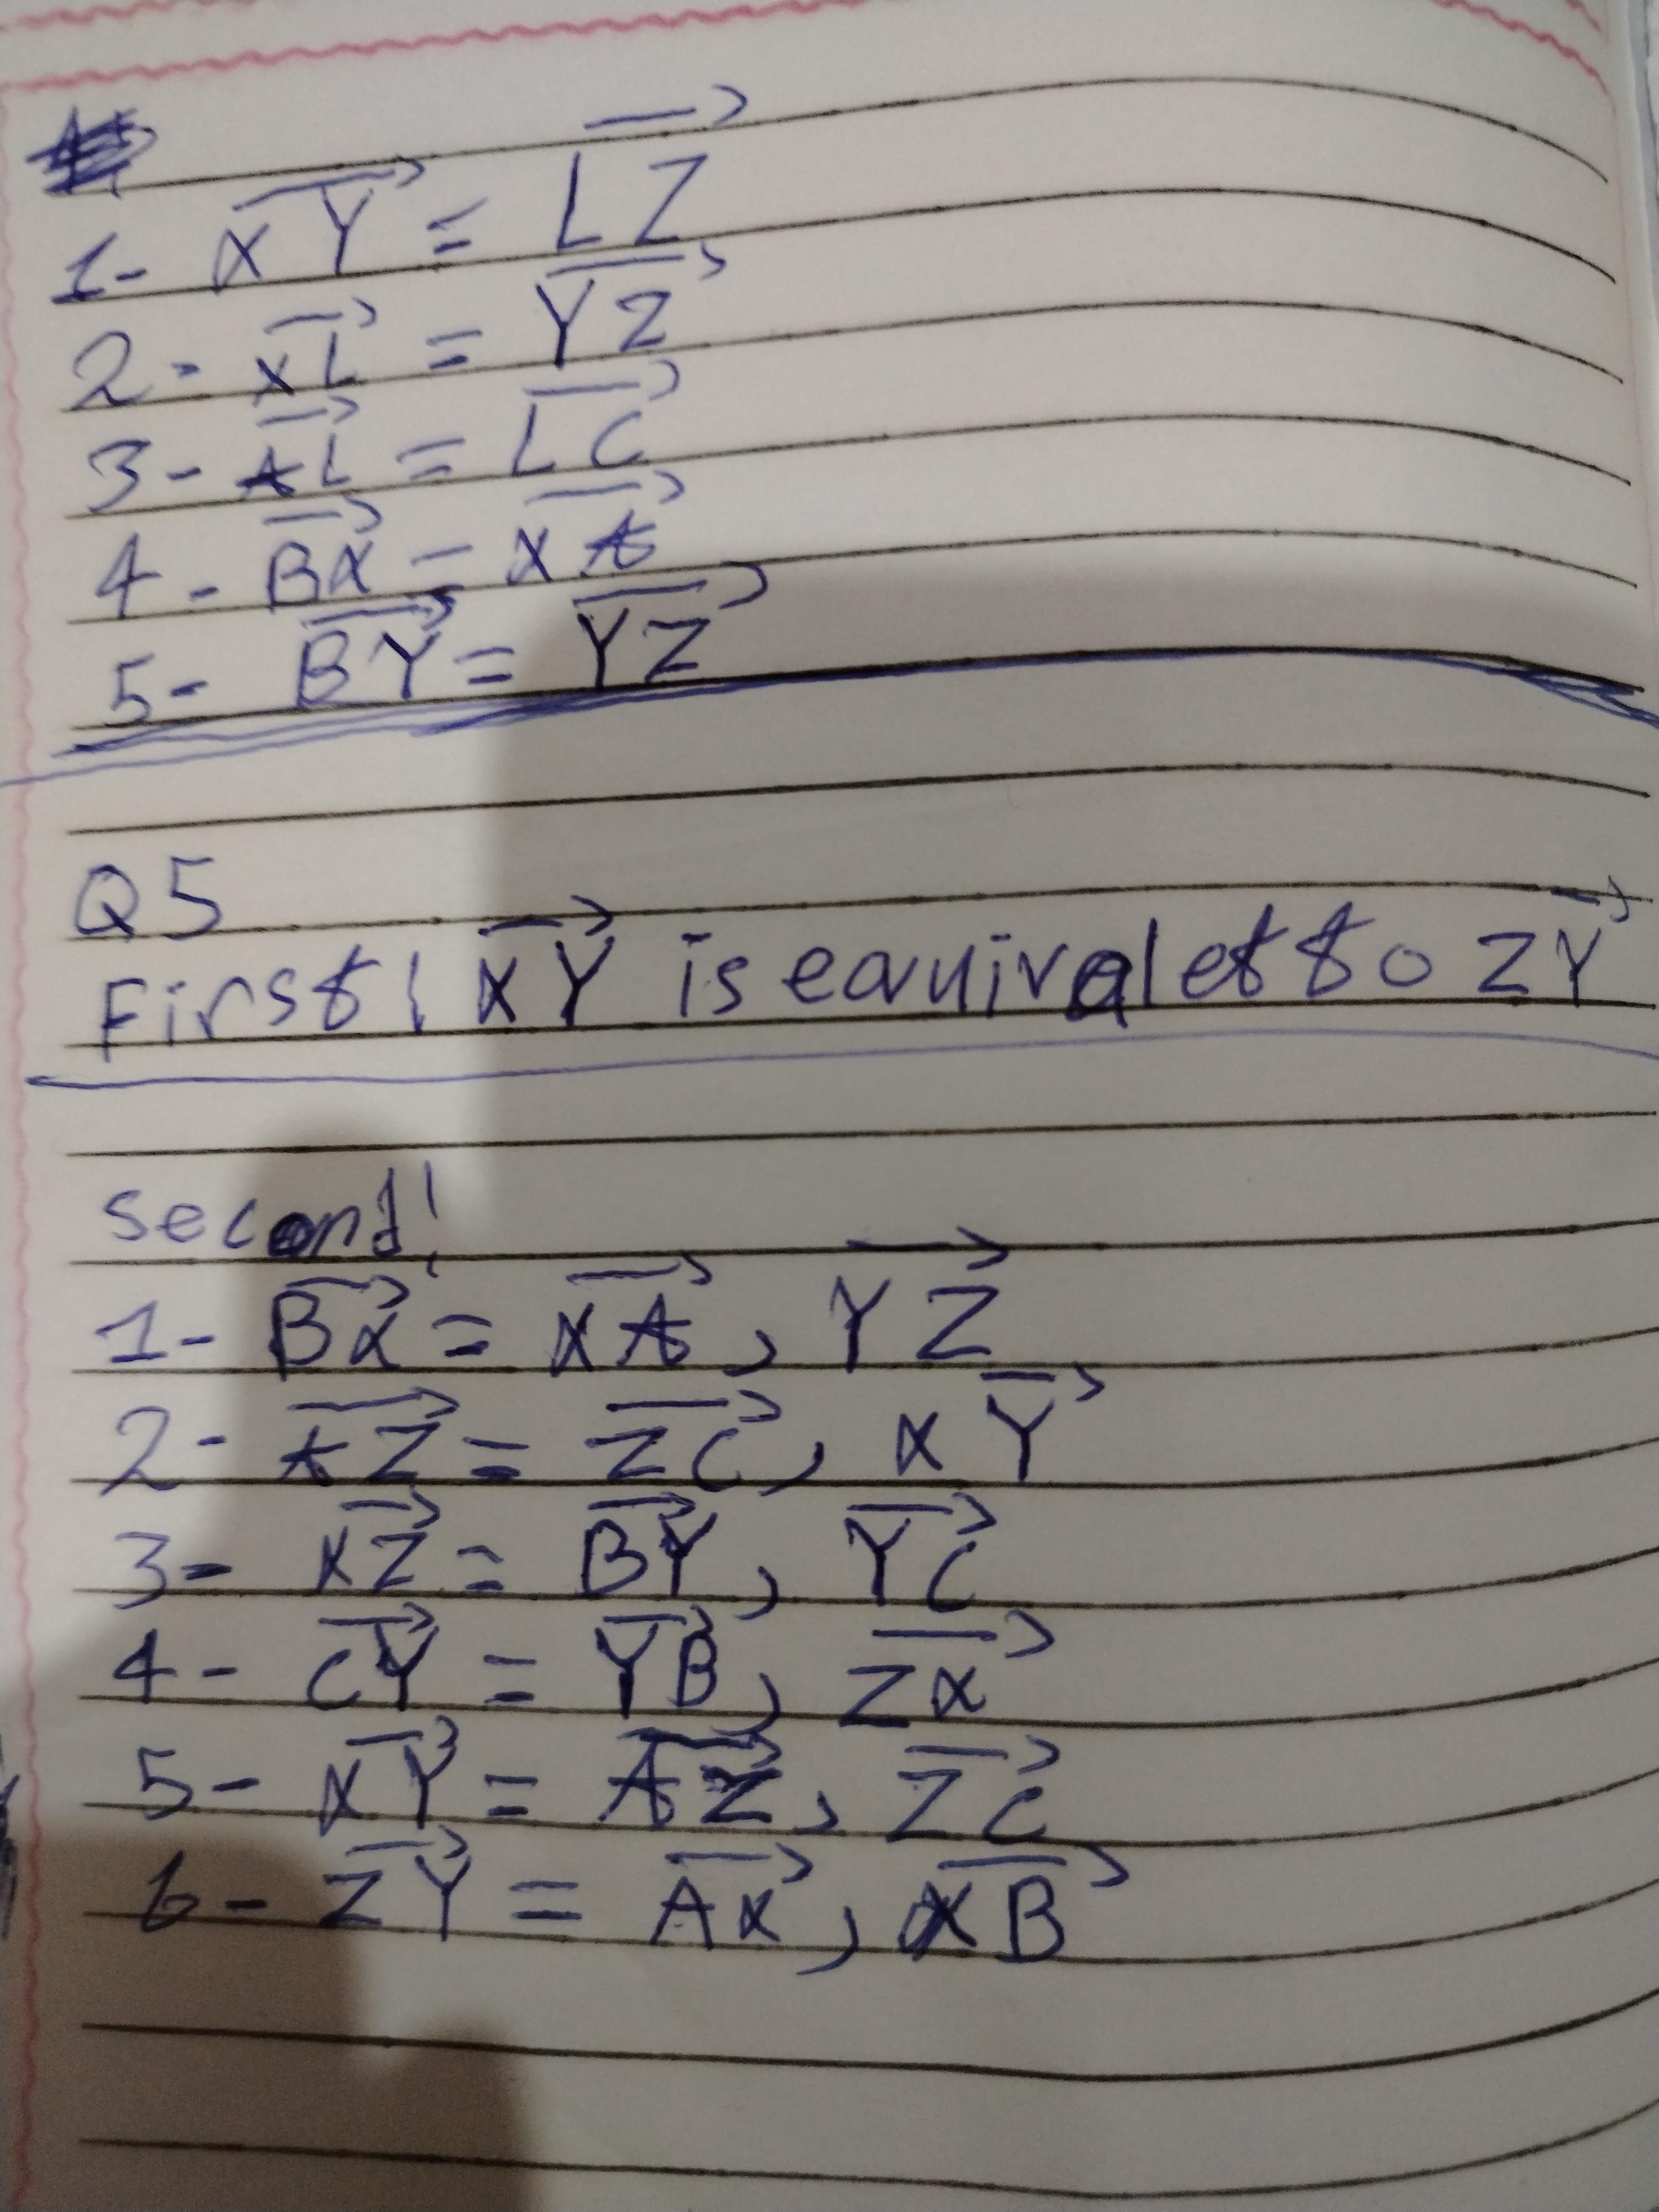 1- XY = LZ
2- XL = YZ
3- AL = LC
4- BX = XA
5- BY = YZ
Q5
First! XY is equivalet to ZY
second!
1- BX = XA, YZ
2- AZ = ZC, XY
3- XZ = BY, YC
4- CY = YB, ZX
5- XY = AZ, ZC
6- ZY = AX, XB